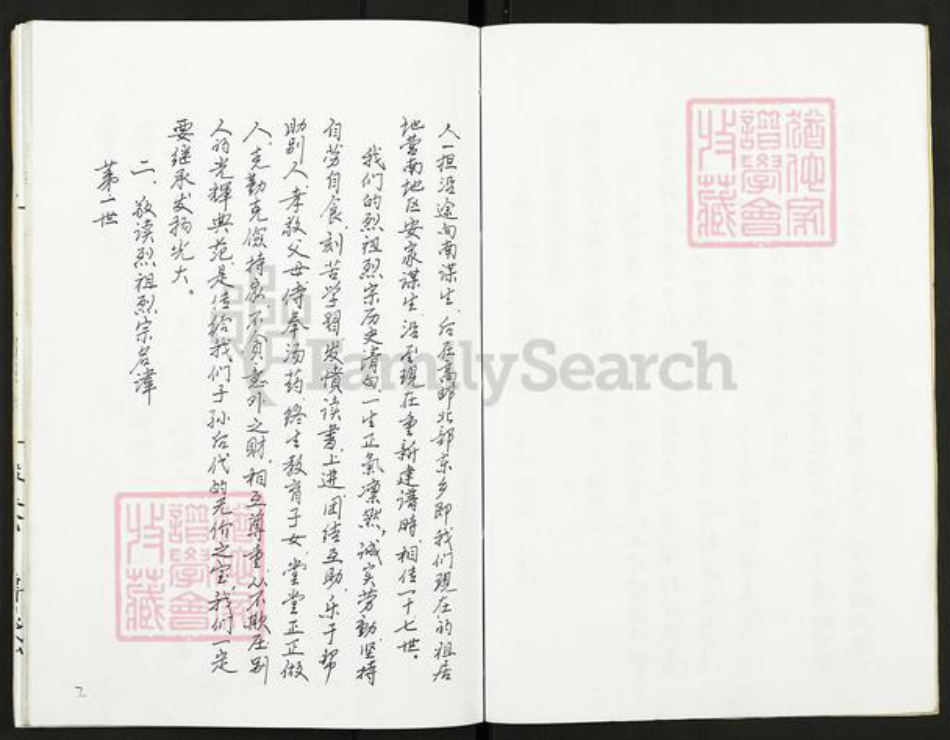 人一担沿途向南谋生，后在高邮北部东乡即我们现在的祖居
地营南地区安家谋生，沿至现在重新建谱時，相传一十七世。
我们的烈祖烈宗历史清白，一生正氣凛然，诚实劳動，坚持
自劳自食，刻苦学習，发憤读書，上进，团结互助，乐于帮
助别人，孝敬父母，侍奉汤药，终生教育子女，堂堂正正做
人，克勤克儉持家，不贪意外之财，相互尊重，从不欺压别
人的光輝典范，是传给我们子孙后代的无价之宝，我们一定
要继承发扬光大。
二、敬读烈祖烈宗名諱
第一世
2
猶他家
譜學會
收藏
猶他家
譜學會
收藏
FamilySearch